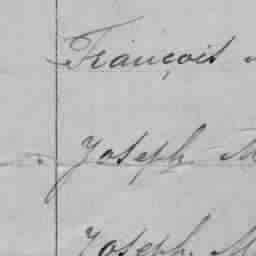 François
Joseph M
Joseph M